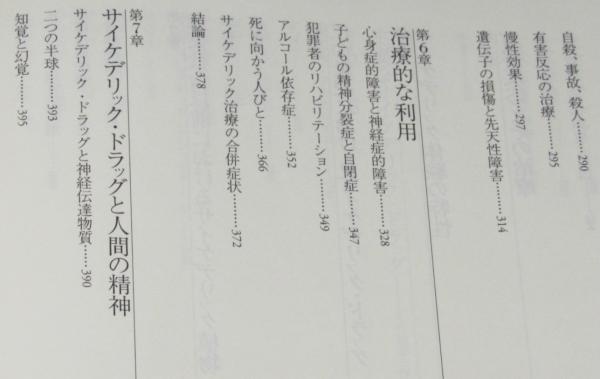 自殺、事故、殺人………290
有害反応の治療………295
慢性効果………297
遺伝子の損傷と先天性障害………314
第6章
治療的な利用
心身症的障害と神経症的障害………328
子どもの精神分裂症と自閉症………347
犯罪者のリハビリテーション………349
アルコール依存症………352
死に向かう人びと………366
サイケデリック治療の合併症状………372
結論………378
第7章
サイケデリック・ドラッグと人間の精神
サイケデリック・ドラッグと神経伝達物質……390
二つの半球………393
知覚と幻覚………395